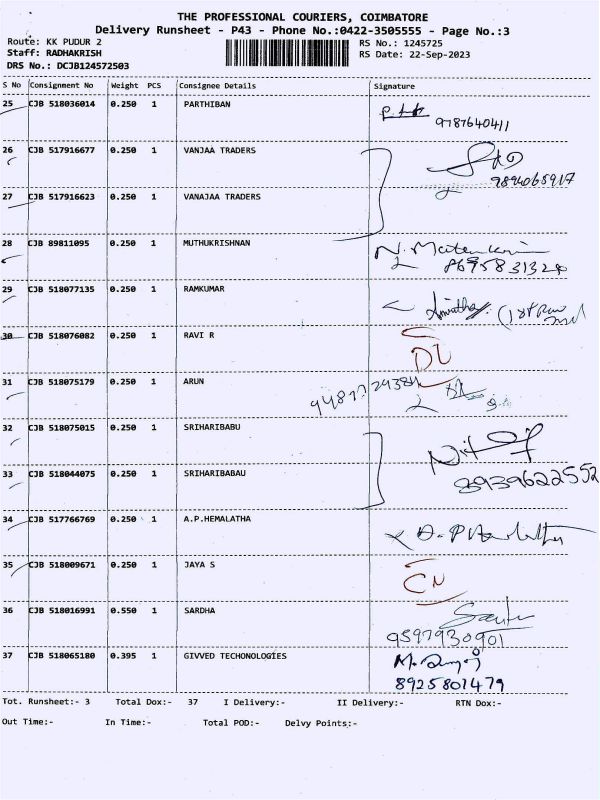 THE PROFESSIONAL COURIERS, COIMBATORE
Delivery Runsheet - P43 - Phone No.:0422-3505555 - Page No.:3
Route: KK PUDUR 2
RS No.: 1245725
Staff: RADHAKRISH
RS Date: 22-Sep-2023
DRS No.: DCJB124572503
S No Consignment No Weight PCS Consignee Details Signature
25 CJB 518036014 0.250 1 PARTHIBAN
9787640411
26 CJB 517916677 0.250 1 VANJAA TRADERS
9894065917
27 CJB 517916623 0.250 1 VANAJAA TRADERS
28 CJB 89811095 0.250 1 MUTHUKRISHNAN
29 CJB 518077135 0.250 1 RAMKUMAR
30 CJB 518076082 0.250 1 RAVI R
DL
31 CJB 518075179 0.250 1 ARUN
32 CJB 518075015 0.250 1 SRIHARIBABU
33 CJB 518044075 0.250 1 SRIHARIBABAU
8939622552
34 CJB 517766769 0.250 1 A.P.HEMALATHA
35 CJB 518009671 0.250 1 JAYA S
CN
36 CJB 518016991 0.550 1 SARDHA
9597930901
37 CJB 518065180 0.395 1 GIVVED TECHONOLOGIES
8925801479
Tot. Runsheet:- 3 Total Dox:- 37 I Delivery:- II Delivery:- RTN Dox:-
Out Time:- In Time:- Total POD:- Delvy Points:-